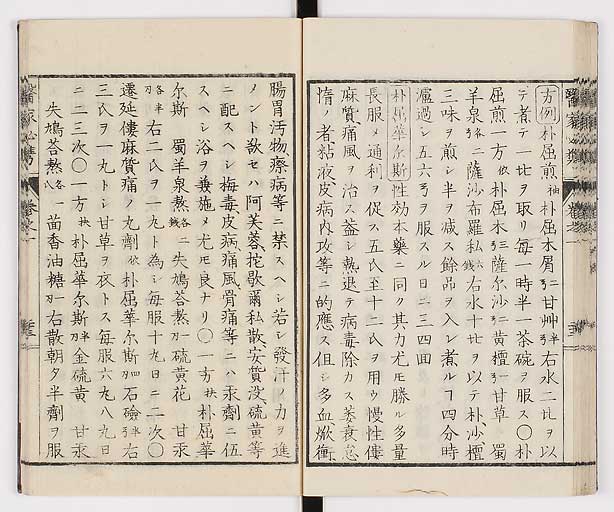 方例 朴屈煎 袖 朴屈木屑 弓二 甘艸 弓半 右水二比ヲ以
テ煮テ一比ヲ取リ每一時半一茶碗ヲ服ス〇朴
屈煎方 依 朴屈木 弓三 薩尔沙 弓二 黄檀 弓一 甘草 蜀
羊泉 各弓 二薩沙布羅私 六錢 右水十比ヲ以テ朴、沙、檀、
三味ヲ煎シ半ヲ減ス餘品ヲ入レ煮ルヿ四分時
濾過シ五六弓ヲ服スル日ニ三四回
朴屈華尔斯 性効本藥ニ同ク其力尤モ勝ル多量
長服メ通利ヲ促ス五氏至十二氏ヲ用ウ慢性僂
麻質、痛風ヲ治ス盖シ熱退テ病毒除カス萎衰怠
惰ノ者粘液皮病内攻等ニ的應ス但シ多血焮衝、
腸胃汚物療病等ニ禁スヘシ若シ發汗ノ力ヲ進
メント欲セハ阿芙蓉、㧌歇爾私散安質没硫黄等
ニ配スヘシ梅毒皮病、痛風骨痛等ニハ汞劑ニ伍
スヘシ浴ヲ兼施メ尤モ良ナリ〇一方 扶 朴屈華
尔斯 蜀羊泉熬 各二錢 失鳩荅熬 刄一 硫黄花 甘汞
各半刄 右二氏ヲ一丸ト為シ每服十九日ニ二次〇
遷延僂麻質痛ノ丸劑 依 朴屈華尔斯 刄四 石鹸 弓半 右
三氏ヲ一丸トシ甘草ヲ衣トス每服六九八九日
ニ二三次〇一方 扶 朴屈華尔斯 刄半 金硫黄 甘汞
失鳩荅熬 各八 茴香油糖 刄一 右散朝夕半劑ヲ服